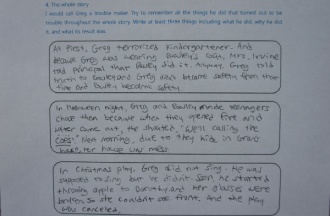 4. The whole story
I would call Greg a trouble maker. Try to remember all the things he did that turned out to be
trouble throughout the whole story. Write at least three things including what he did, why he did
it, and what its result was.
At first, Greg terrorized kindergartener. And
because Greg was wearing Rowley's coat, Mrs. Irvine
told principal that Rowley did it. Anyway, Greg told
truth to Rowley and Greg
time and Rowley became safety
In Halloween night, Greg and Rowley made teenagers
chase them because when they opened fire and
water came out, he shouted, "We'll calling the
Cops!" Next morning, due to they hide in Gram's
house, her house was mess.
In Christmas play, Greg did not sing. He was
supposed to sing but he didn't. Soon, he started
throwing apple to Dorothy and her glasses were
broken, so she couldn't see front. And the play
was canceled.